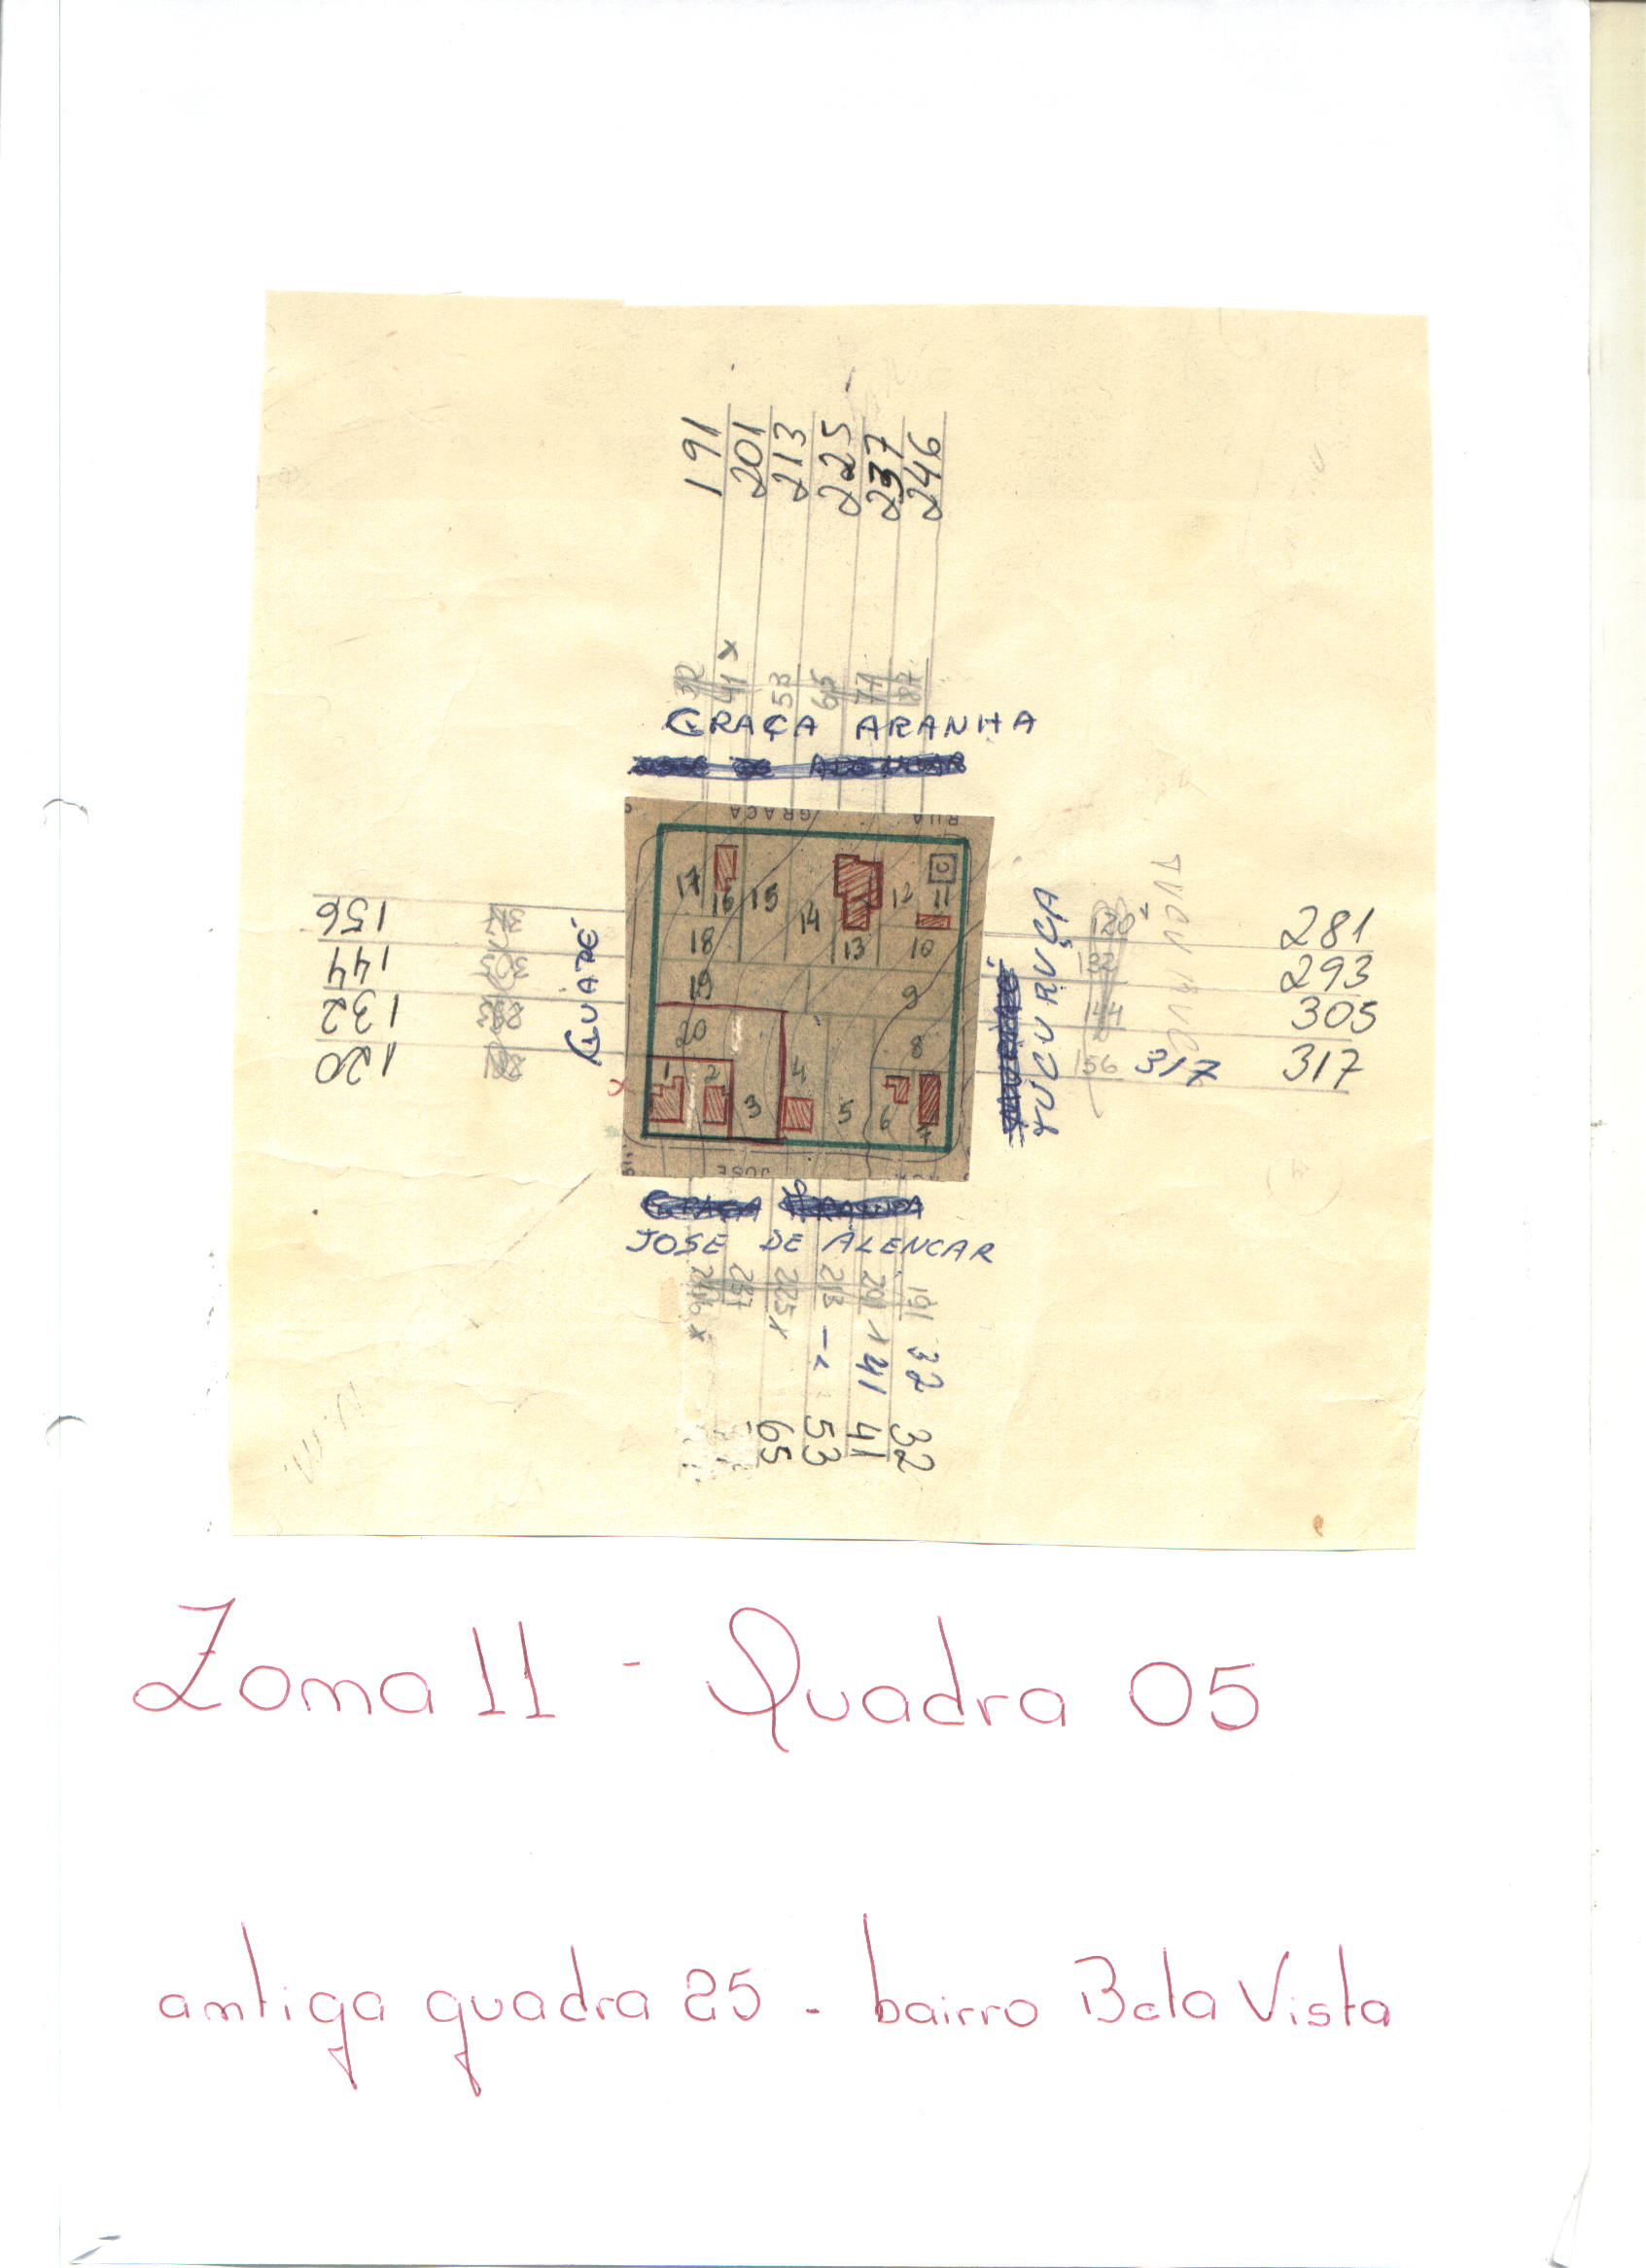 191
201
213
225
237
246
32
41 x
53
65
77
87
GRAÇA ARANHA
JOSE DE ALENCAR
GRAÇA
RUA
17
16
15
14
13
12
11
10
18
19
9
20
8
1
2
3
4
5
6
7
JOSE
156
144
132
120
GUAPÉ
TUCURUÇA
120
132
144
156
317
281
293
305
317
GRAÇA ARANHA
JOSE DE ALENCAR
246 x
237
225 x
213
201
191
32
41
65
53
41
32
Zona 11 - Quadra 05
antiga quadra 25 - bairro Bela Vista